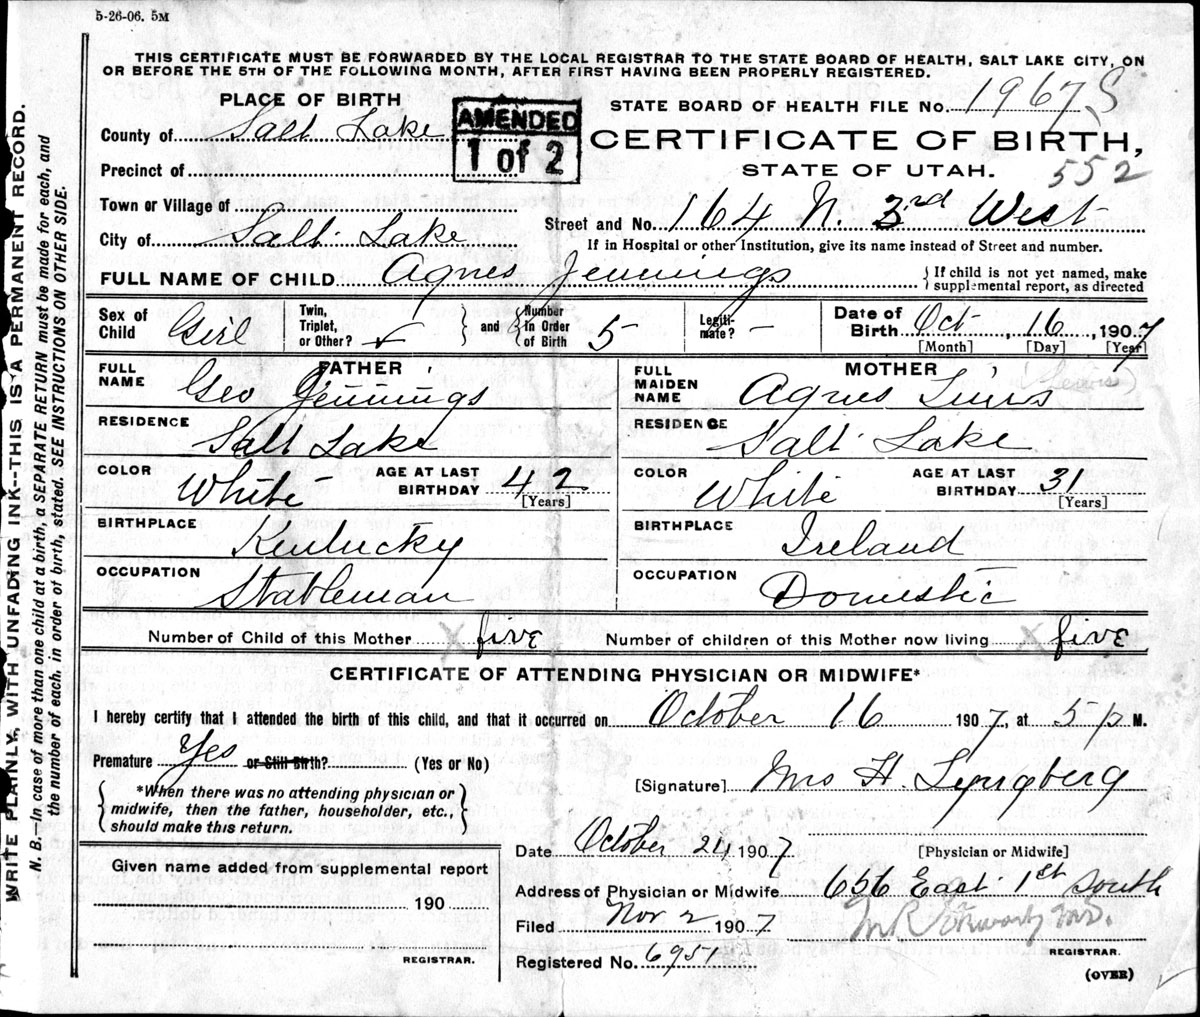 5-26-06. 5M
THIS CERTIFICATE MUST BE FORWARDED BY THE LOCAL REGISTRAR TO THE STATE BOARD OF HEALTH, SALT LAKE CITY, ON
OR BEFORE THE 5TH OF THE FOLLOWING MONTH, AFTER FIRST HAVING BEEN PROPERLY REGISTERED.
WRITE PLAINLY, WITH UNFADING INK--THIS IS A PERMANENT RECORD.
N. B.—In case of more than one child at a birth, a SEPARATE RETURN must be made for each, and
the number of each, in order of birth, stated. SEE INSTRUCTIONS ON OTHER SIDE.
PLACE OF BIRTH
County of Salt Lake
Precinct of
Town or Village of
City of Salt Lake
AMENDED
1 of 2
STATE BOARD OF HEALTH FILE No. 1967
CERTIFICATE OF BIRTH,
STATE OF UTAH.
552
Street and No. 164 N. 3rd West
If in Hospital or other Institution, give its name instead of Street and number.
FULL NAME OF CHILD Agnes Jennings
If child is not yet named, make
supplemental report, as directed
Sex of Child Girl
Twin, Triplet, or Other?
and Number In Order of Birth 5
Legiti-mate? -
Date of Birth Oct, 16, 1907
[Month] [Day] [Year]
FATHER
FULL NAME Geo Jennings
RESIDENCE Salt Lake
COLOR White
AGE AT LAST BIRTHDAY 42
[Years]
BIRTHPLACE Kentucky
OCCUPATION Stableman
MOTHER
(Lewis)
FULL MAIDEN NAME Agnes
RESIDENCE Salt Lake
COLOR White
AGE AT LAST BIRTHDAY 31
[Years]
BIRTHPLACE Ireland
OCCUPATION Domestic
Number of Child of this Mother X five
Number of children of this Mother now living X five
CERTIFICATE OF ATTENDING PHYSICIAN OR MIDWIFE*
I hereby certify that I attended the birth of this child, and that it occurred on October 16 1907, at 5 p M.
Premature Yes or Still Birth? (Yes or No)
*When there was no attending physician or
midwife, then the father, householder, etc.,
should make this return.
[Signature] Mrs H. Lyngberg
[Physician or Midwife]
Date October 24 1907
Address of Physician or Midwife 656 East 1st South
Given name added from supplemental report
190
REGISTRAR.
Filed Nov 2 1907
REGISTRAR.
Registered No. 6951
(OVER)